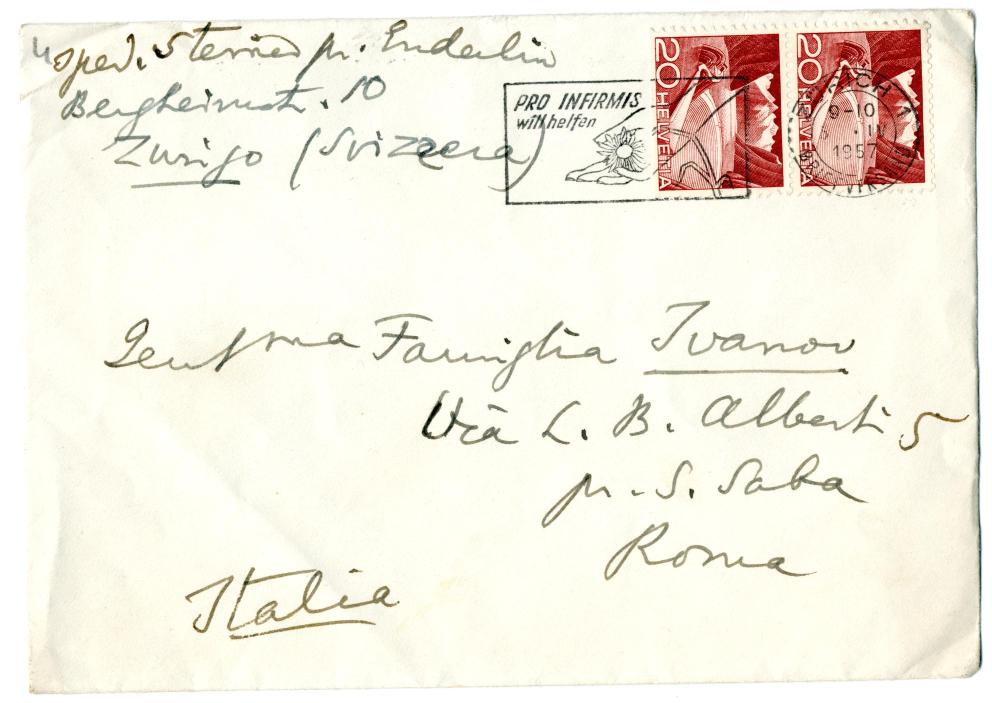 sped. Steiner pr. Enderlin
Bergheimstr. 10
Zurigo (Svizzera)
PRO INFIRMIS
will helfen
20 HELVETIA
20 HELVETIA
ZÜRICH 1
9-10
1957
Gentma Famiglia Ivanov
Via L. B. Alberti 5
pr. S. Saba
Roma
Italia